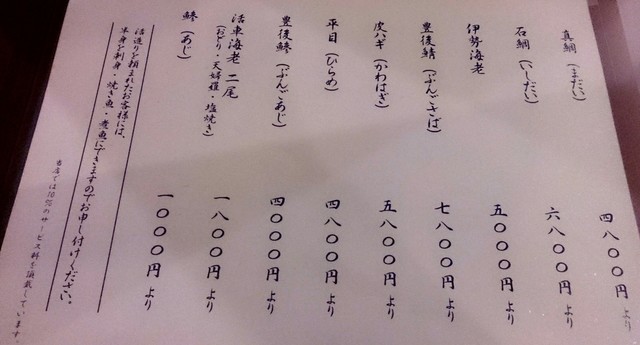 真鯛（まだい）　四八〇〇円より
石鯛（いしだい）　六八〇〇円より
伊勢海老　五〇〇〇円より
豊後鯖（ぶんごさば）　七八〇〇円より
皮ハギ（かわはぎ）　五八〇〇円より
平目（ひらめ）　四八〇〇円より
豊後鯵（ぶんごあじ）　四〇〇〇円より
活車海老　二尾　一八〇〇円より
（おどり・天婦羅・塩焼き）
鯵（あじ）　一〇〇〇円より
活造りを頼まれたお客様には、
半身を刺身・焼き魚・煮魚にできますのでお申し付けください。
当店では10%のサービス料を頂戴しています。